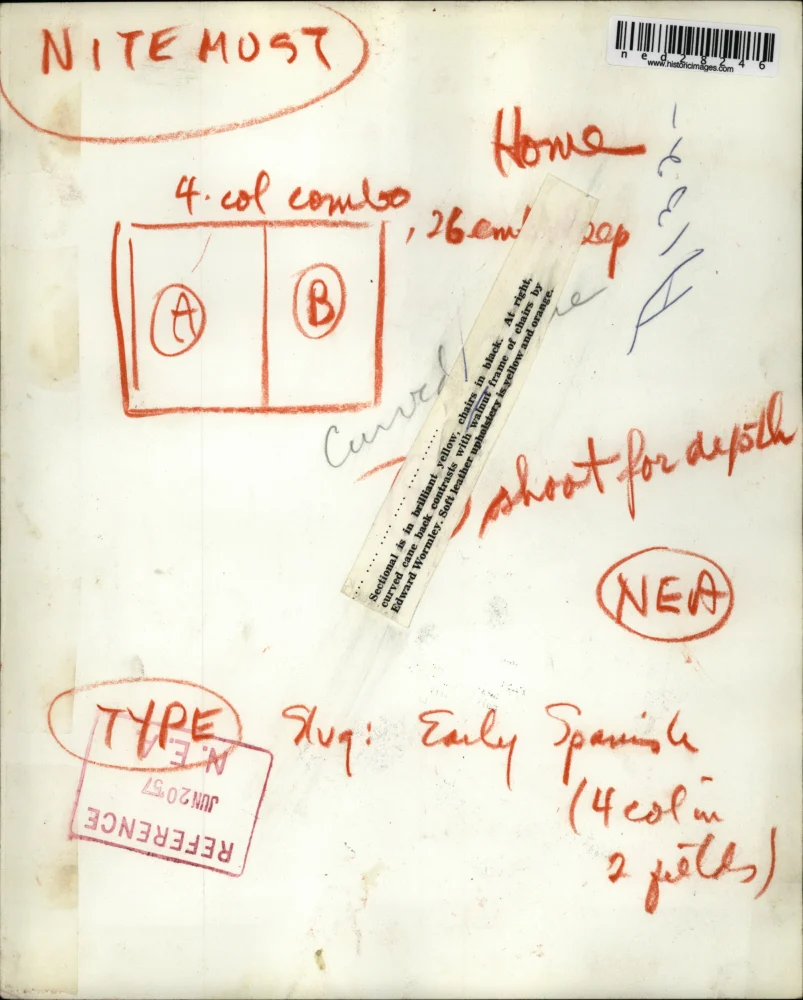 NITE MUST
ned28246
www.historicimages.com
Home
4 col combo
, 26 em
A
B
Curved
. . . . . . . . . . . . . .
Sectional is in brilliant yellow, chairs in black. At right,
curved cane back contrasts with walnut frame of chairs by
Edward Wormley. Soft leather upholstery is yellow and orange.
shoot for depth
NEA
TYPE
Slug: Early Spanish
(4 col in
2 fields)
REFERENCE
JUN 20 '57
N. E. A.